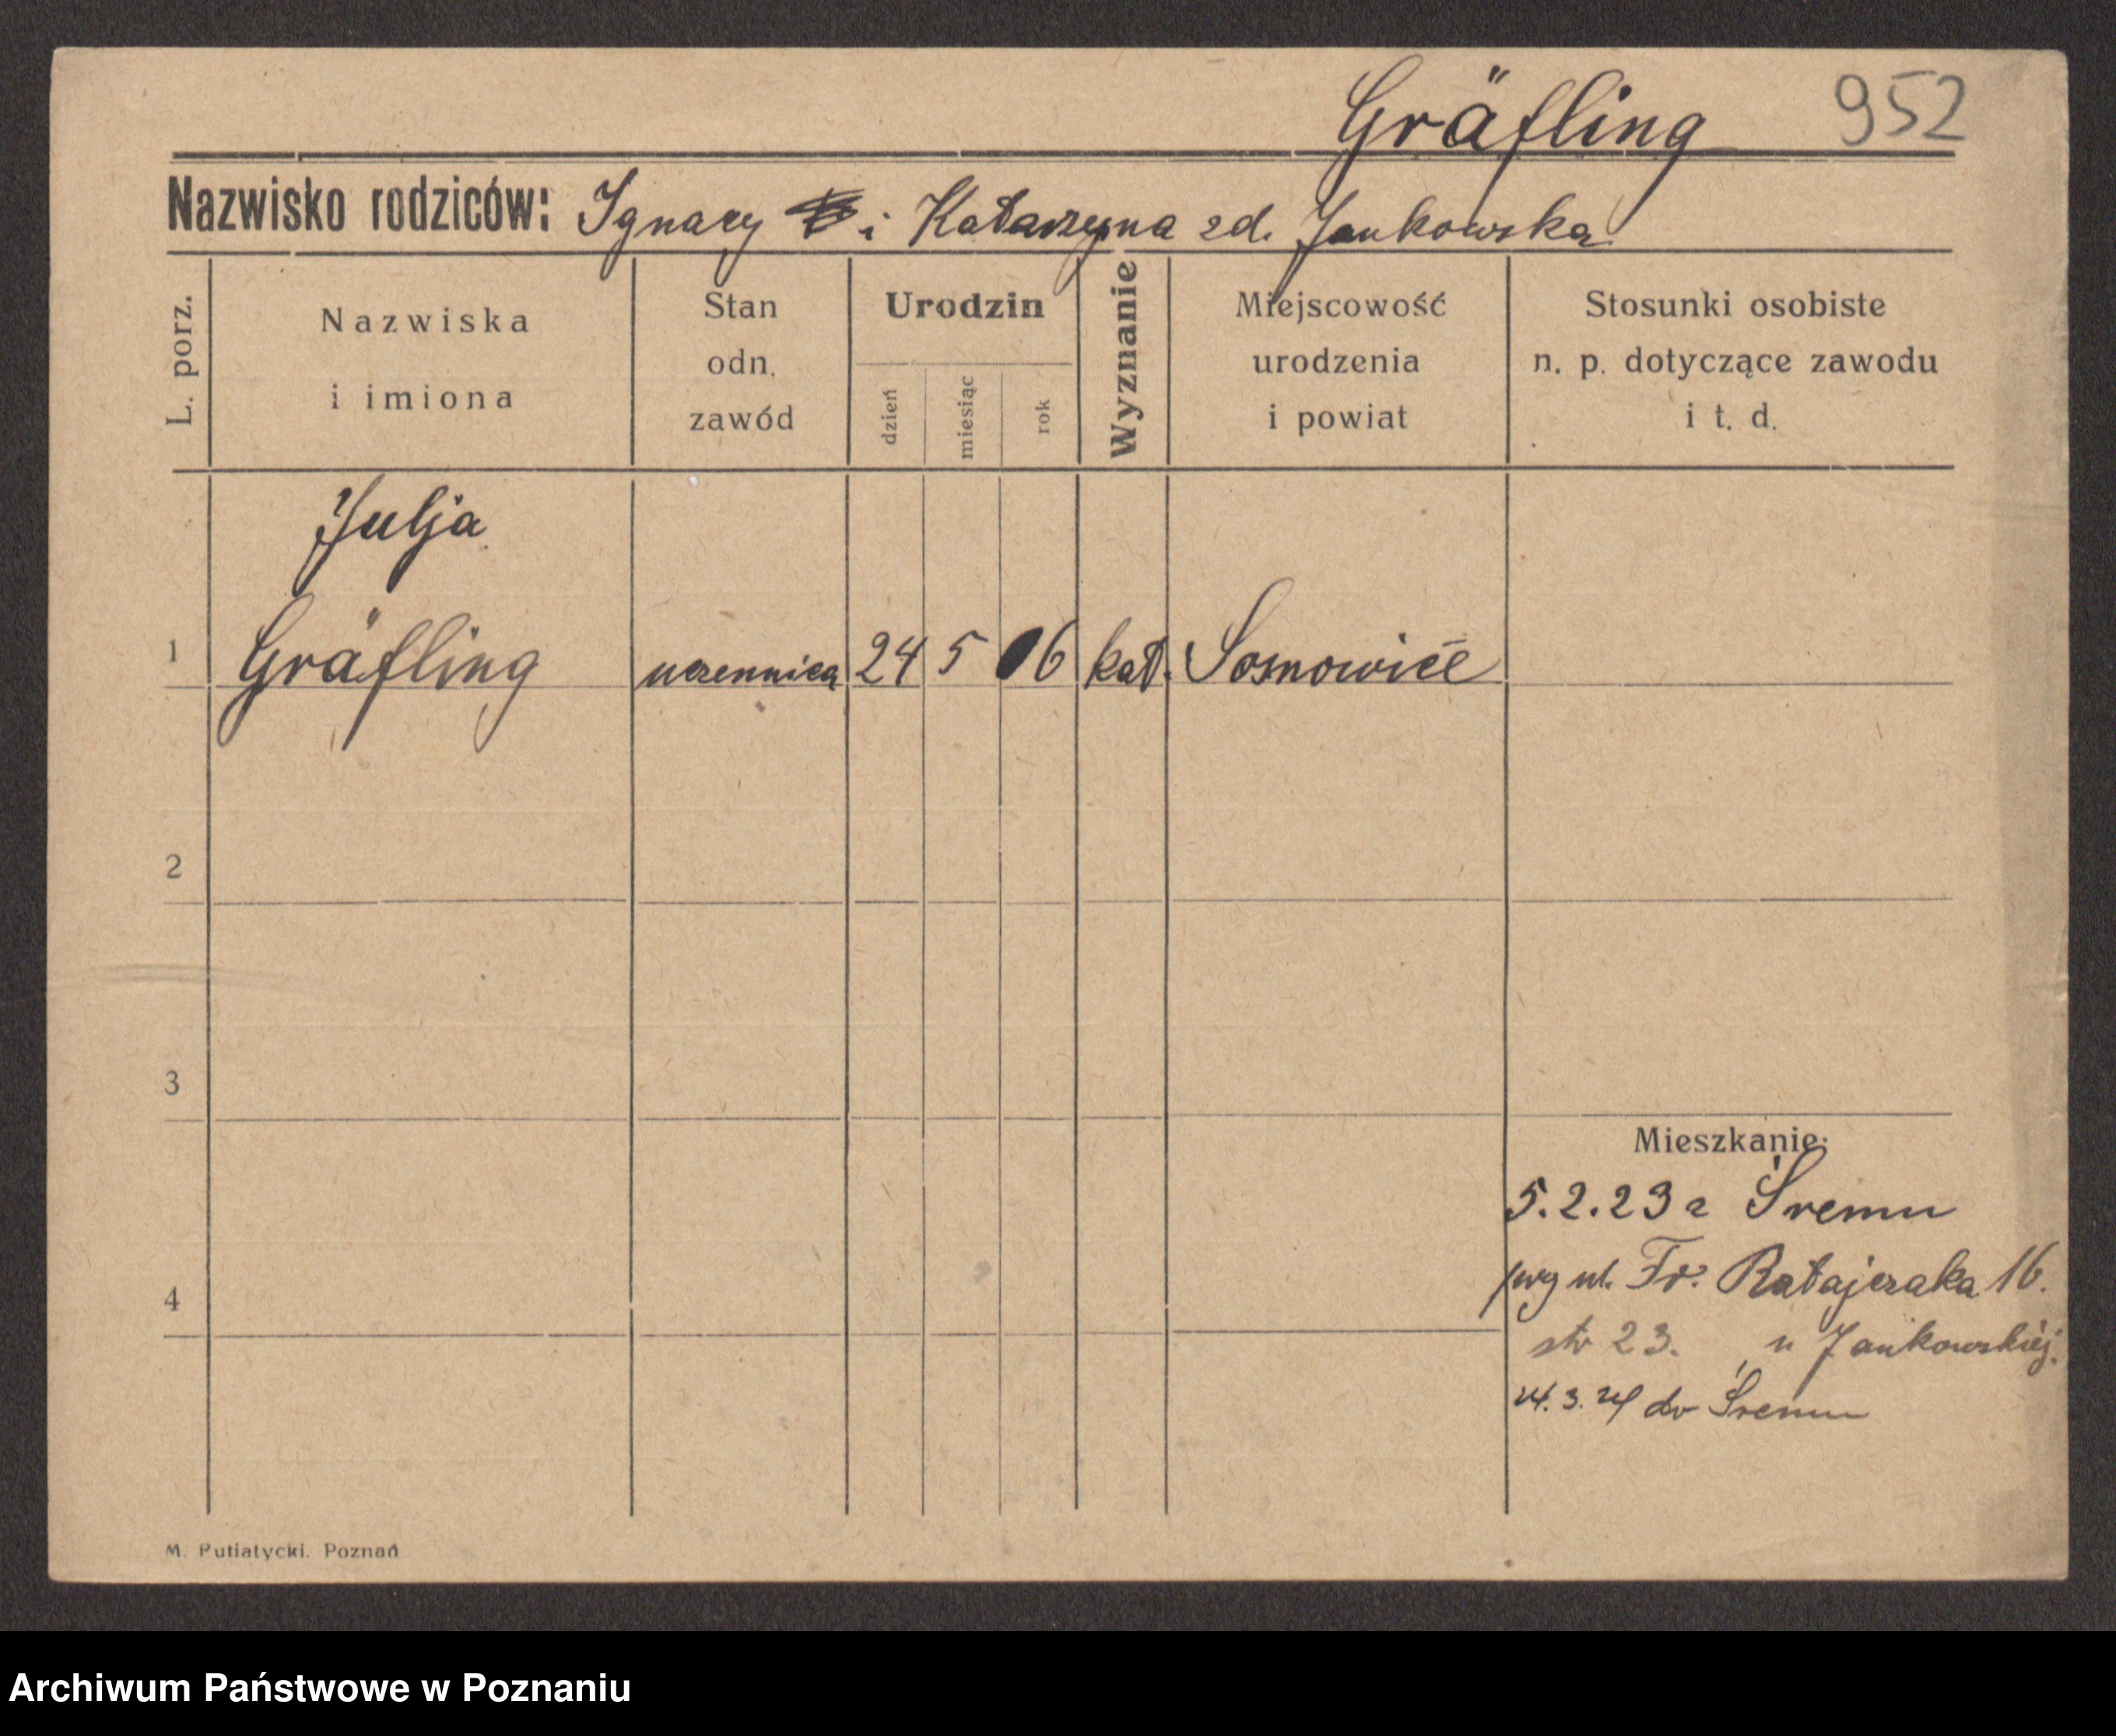 Gräfling 952
Nazwisko rodziców: Ignacy i Katarzyna zd. Jankowska
L. porz.
Nazwiska
i imiona
Stan
odn.
zawód
Urodzin
dzień
miesiąc
rok
Wyznanie
Miejscowość
urodzenia
i powiat
Stosunki osobiste
n. p. dotyczące zawodu
i t. d.
Julja
1 Gräfling uczennica 24 5 06 kat. Sosnowice
2
3
Mieszkanie:
5.2.23 z Śremu
ul. Fr. Ratajczaka 16.
4
str 23. u Jankowskiej.
24. 3. 24 do Śremu
M. Putiatycki. Poznań
Archiwum Państwowe w Poznaniu